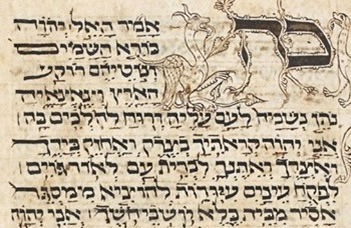 כה אמר האל יהוה
בורא השמים
ונוטיהם רוקע
הארץ וצאצאיה
נתן נשמה לעם עליה ורוח להלכים בה׃
אני יהוה קראתיך בצדק ואחזק בידך
ואצרך ואתנך לברית עם לאור גוים׃
לפקח עינים עורות להוציא ממסגר
אסיר מבית כלא יושבי חשך׃ אני יהוה